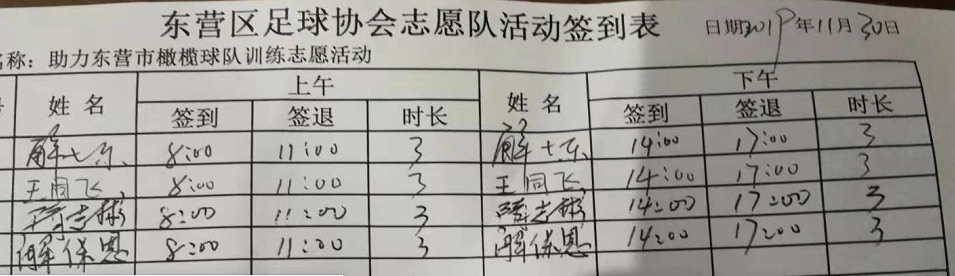 东营区足球协会志愿队活动签到表 日期2019年11月30日
名称：助力东营市橄榄球队训练志愿活动
姓名 上午 姓名 下午
签到 签退 时长 签到 签退 时长
解士东 8:00 11:00 3 解士东 14:00 17:00 3
王同飞 8:00 11:00 3 王同飞 14:00 17:00 3
志彬 8:00 11:00 3 志彬 14:00 17:00 3
解保恩 8:00 11:00 3 解保恩 14:00 17:00 3